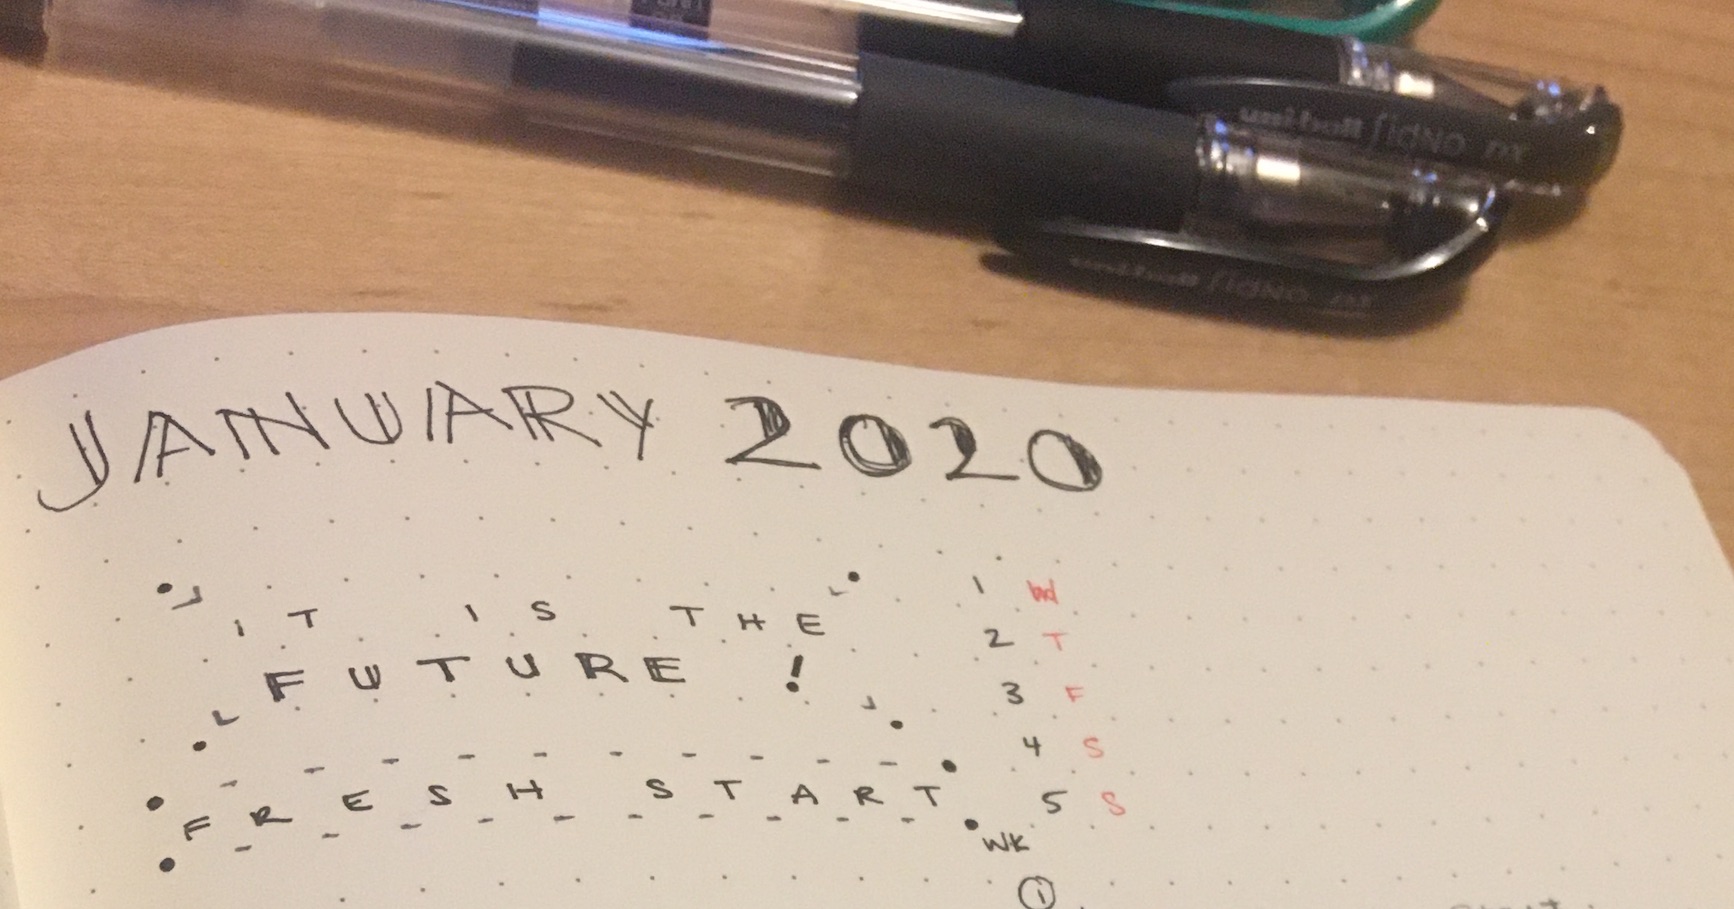 uni-ball SIGNO DX
uni-ball SIGNO DX
JANUARY 2020
IT IS THE
FUTURE !
FRESH START
1 W
2 T
3 F
4 S
5 S
WK
1